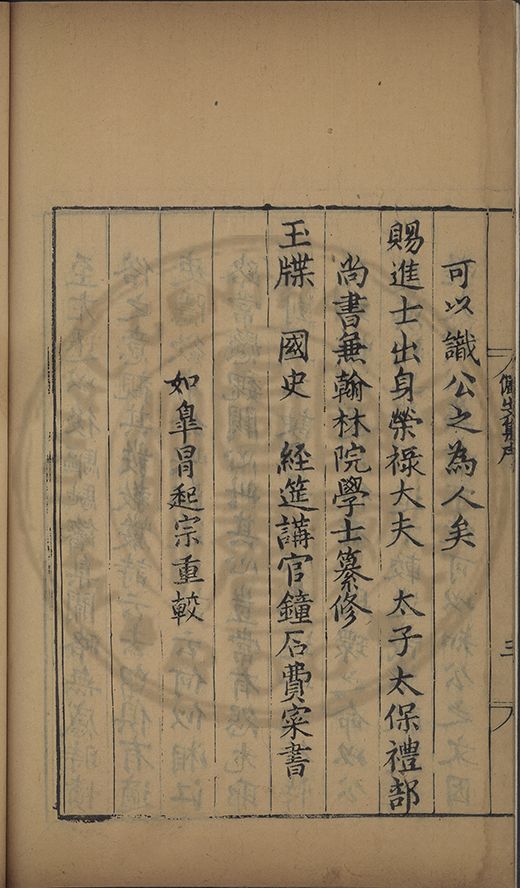 可以識公之為人矣
賜進士出身榮祿大夫 太子太保禮部
尚書兼翰林院學士纂修
玉牒 國史 經筵講官鐘石費寀書
如臯冒起宗重較
三